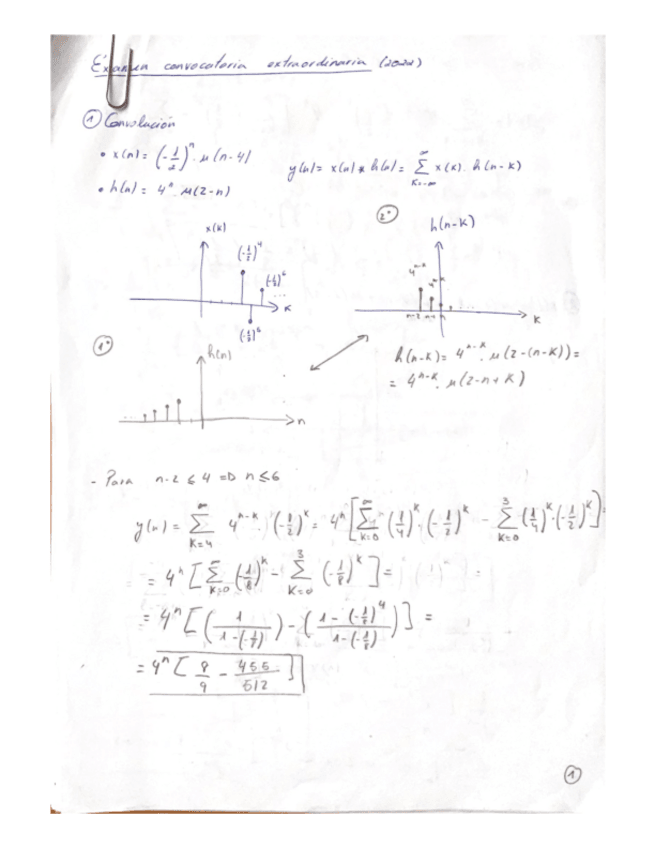 Examen convocatoria extraordinaria (2022)
① Convolución
• x(n) = (-1/2)^n · μ(n-4)
y(n) = x(n) * h(n) = Σ_{k=-∞}^{∞} x(k) · h(n-k)
• h(n) = 4^n · μ(2-n)
x(k)
(-1/2)^4
(-1/2)^6
...
k
2°
h(n-k)
4^{n-k}
n-2
k
1°
h(n)
...
n
h(n-k) = 4^{n-k} · μ(2-(n-k)) =
= 4^{n-k} · μ(2-n+k)
- Para n-2 ≤ 4 => n ≤ 6
y(n) = Σ_{k=4}^{∞} 4^{n-k} · (-1/2)^k = 4^n [Σ_{k=0}^{∞} (1/4)^k · (-1/2)^k - Σ_{k=0}^{3} (1/4)^k · (-1/2)^k] =
= 4^n [Σ_{k=0}^{∞} (-1/8)^k - Σ_{k=0}^{3} (-1/8)^k] =
= 4^n [(1/(1-(-1/8))) - ((1-(-1/8)^4)/(1-(-1/8)))] =
= 4^n [8/9 - 455/512]
①